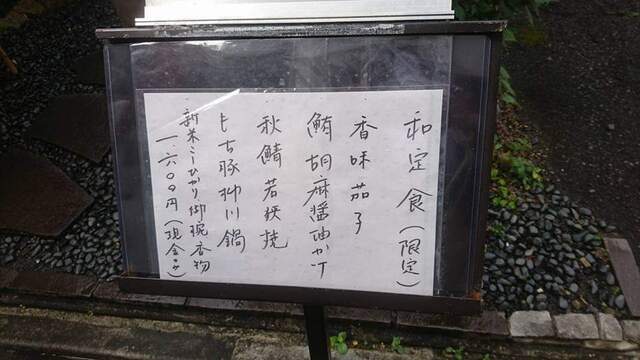 和定食(限定)
香味茄子
鮪胡麻醤油かけ
秋鯖若狭焼
もち豚柳川鍋
新米こしひかり御椀香物
一、六〇〇円(現金のみ)